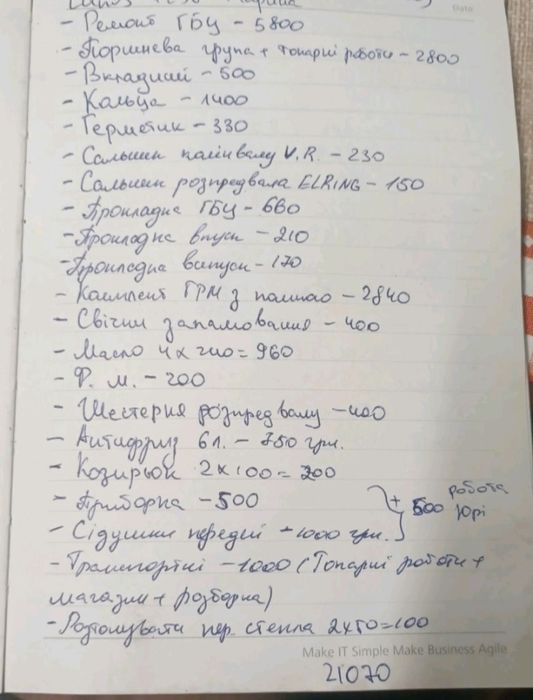 Data
- Ремонт ГБЦ - 5800
- Поршнева група + токарні роботи - 2800
- Вкладиші - 500
- Кольца - 1400
- Герметик - 330
- Сальник колінвалу V.R. - 230
- Сальник розпредвала ELRING - 150
- Прокладка ГБЦ - 660
- Прокладка впуск - 210
- Прокладка випуск - 170
- Комплект ГРМ з помпою - 2840
- Свічки запалювання - 400
- Масло 4 х 240 = 960
- Ф. М. - 200
- Шестерня розпредвалу - 400
- Антифриз 6л. - 750 грн.
- Козирьок 2 х 100 = 200
- Приборка - 500
- Сідушки передні - 1000 грн.
+ 500 робота
Юрі
- Транспортні - 1000 (Токарні роботи +
магазин + розборка)
- Розтонувати пер. стекла 2х50=100
Make IT Simple Make Business Agile
21070